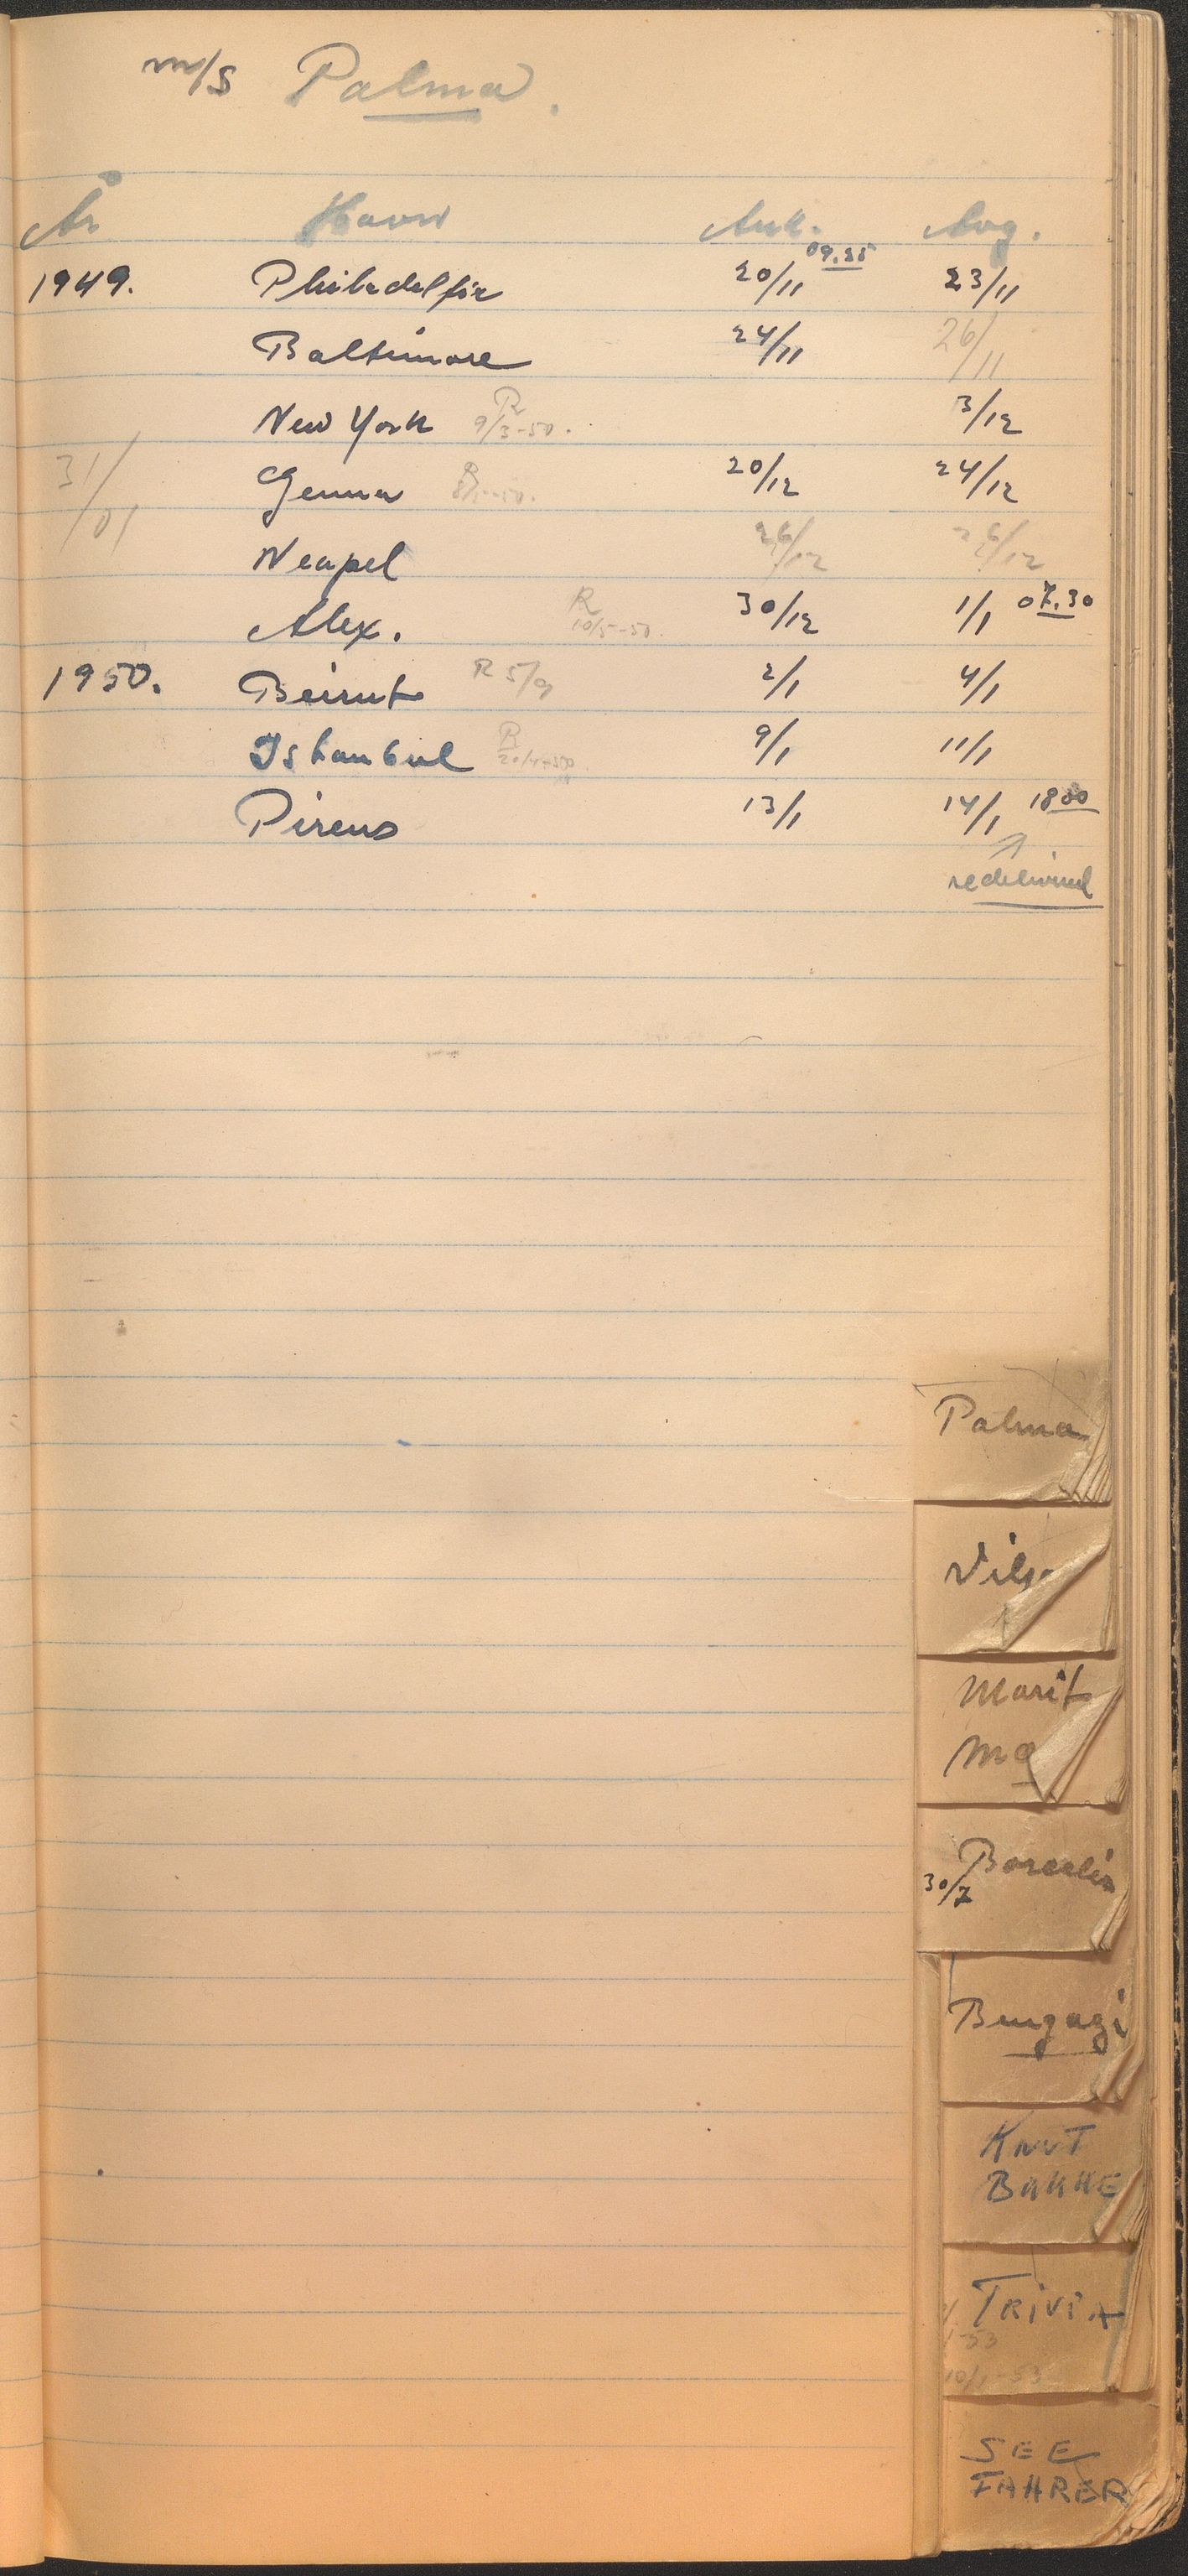 m/s Palma.
År Havn Ank. Avg.
1949. Philadelfia 20/11 09.25 23/11
Baltimore 24/11 26/11
New York R 9/3-50. 3/12
31/01 Genua 20/12 24/12
Neapel 26/12 26/12
Alex. R 10/5-50. 30/12 1/1 07.30
1950. Beirut R 5/9 2/1 4/1
Istanbul R 9/1 11/1
Pireus 13/1 14/1 1800
redelivered
Palma
Marit
30/7
Knut
Bakke
Trivia
10/1-53
SEE
FAHRER